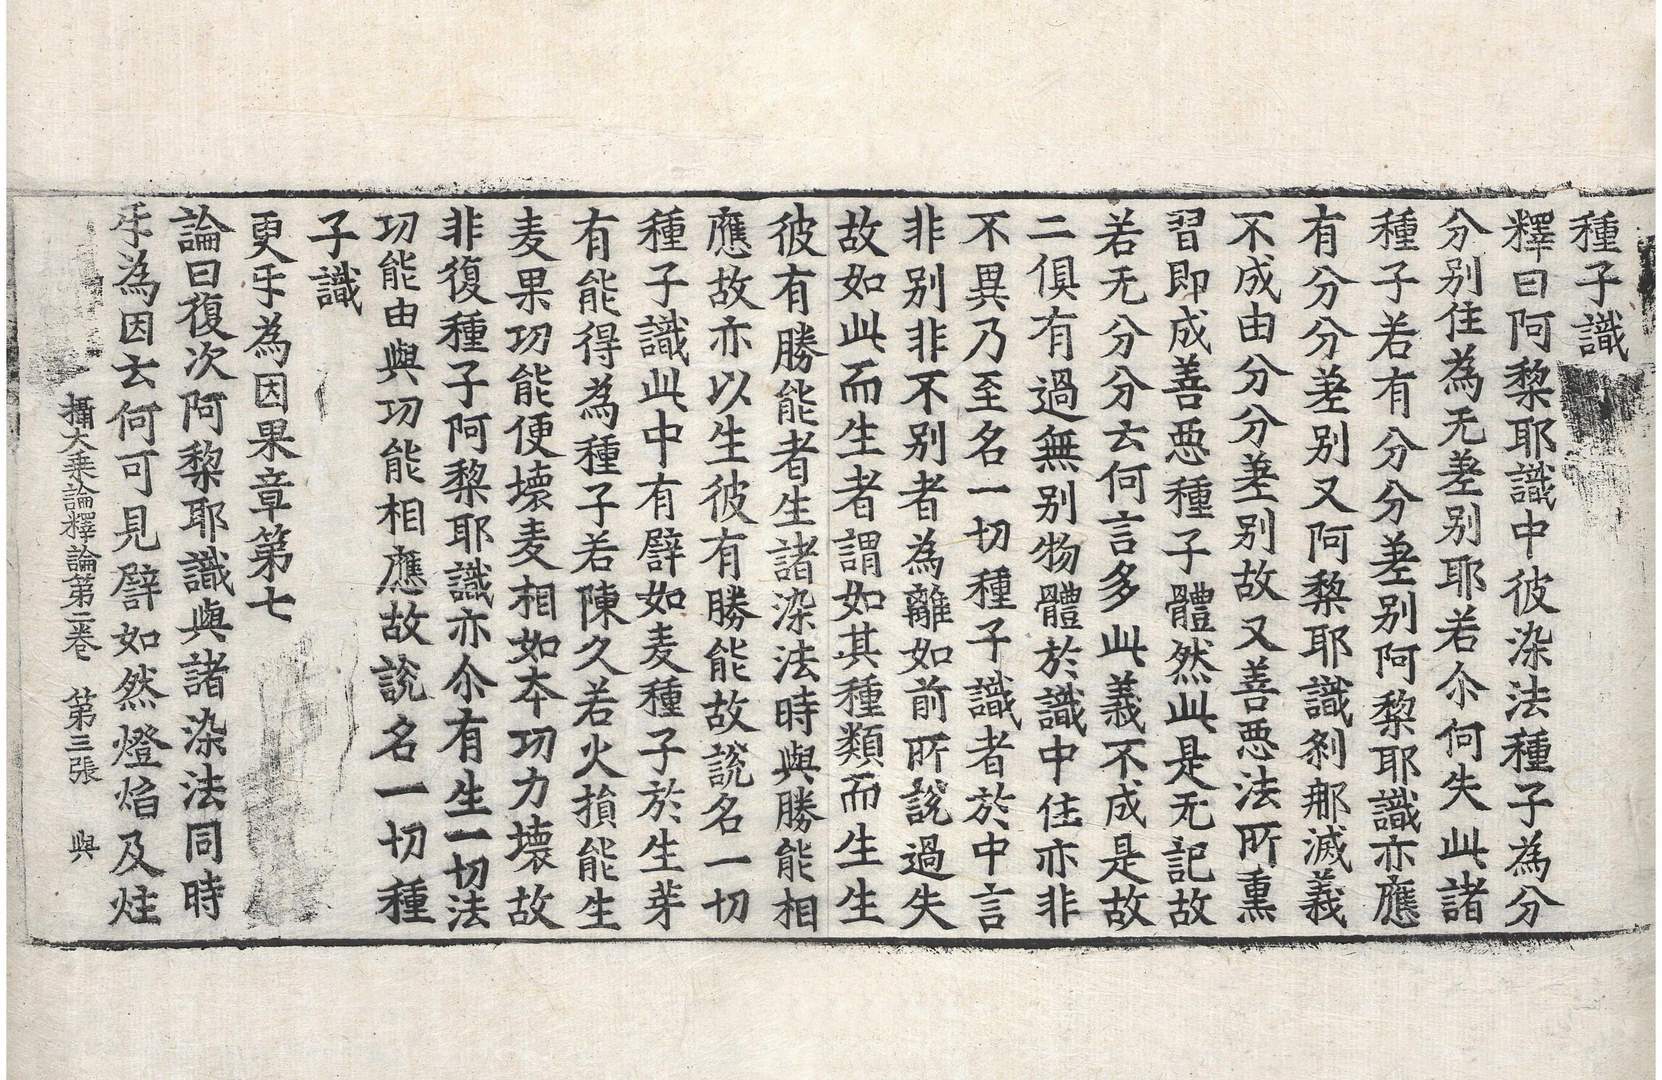 種子識
釋曰阿梨耶識中彼染法種子為分
分別住為无差别耶若尒何失此諸
種子若有分分差别阿梨耶識亦應
有分分差别又阿梨耶識刹那滅義
不成由分分差别故又善悪法所熏
習即成善悪種子體然此是无記故
若无分分云何言多此義不成是故
二俱有過無别物體於識中住亦非
不異乃至名一切種子識者於中言
非别非不别者為離如前所說過失
故如此而生者謂如其種類而生生
彼有勝能者生諸染法時與勝能相
應故亦以生彼有勝能故說名一切
種子識此中有譬如麦種子於生芽
有能得為種子若陳久若火損能生
麦果功能便壞麦相如夲功力壞故
非復種子阿梨耶識亦尒有生一切法
功能由與功能相應故說名一切種
子識
更乎為因果章第七
論曰復次阿梨耶識與諸染法同時
乎為因云何可見譬如然燈焰及炷
攝大乘論釋論第二卷　第三張　與